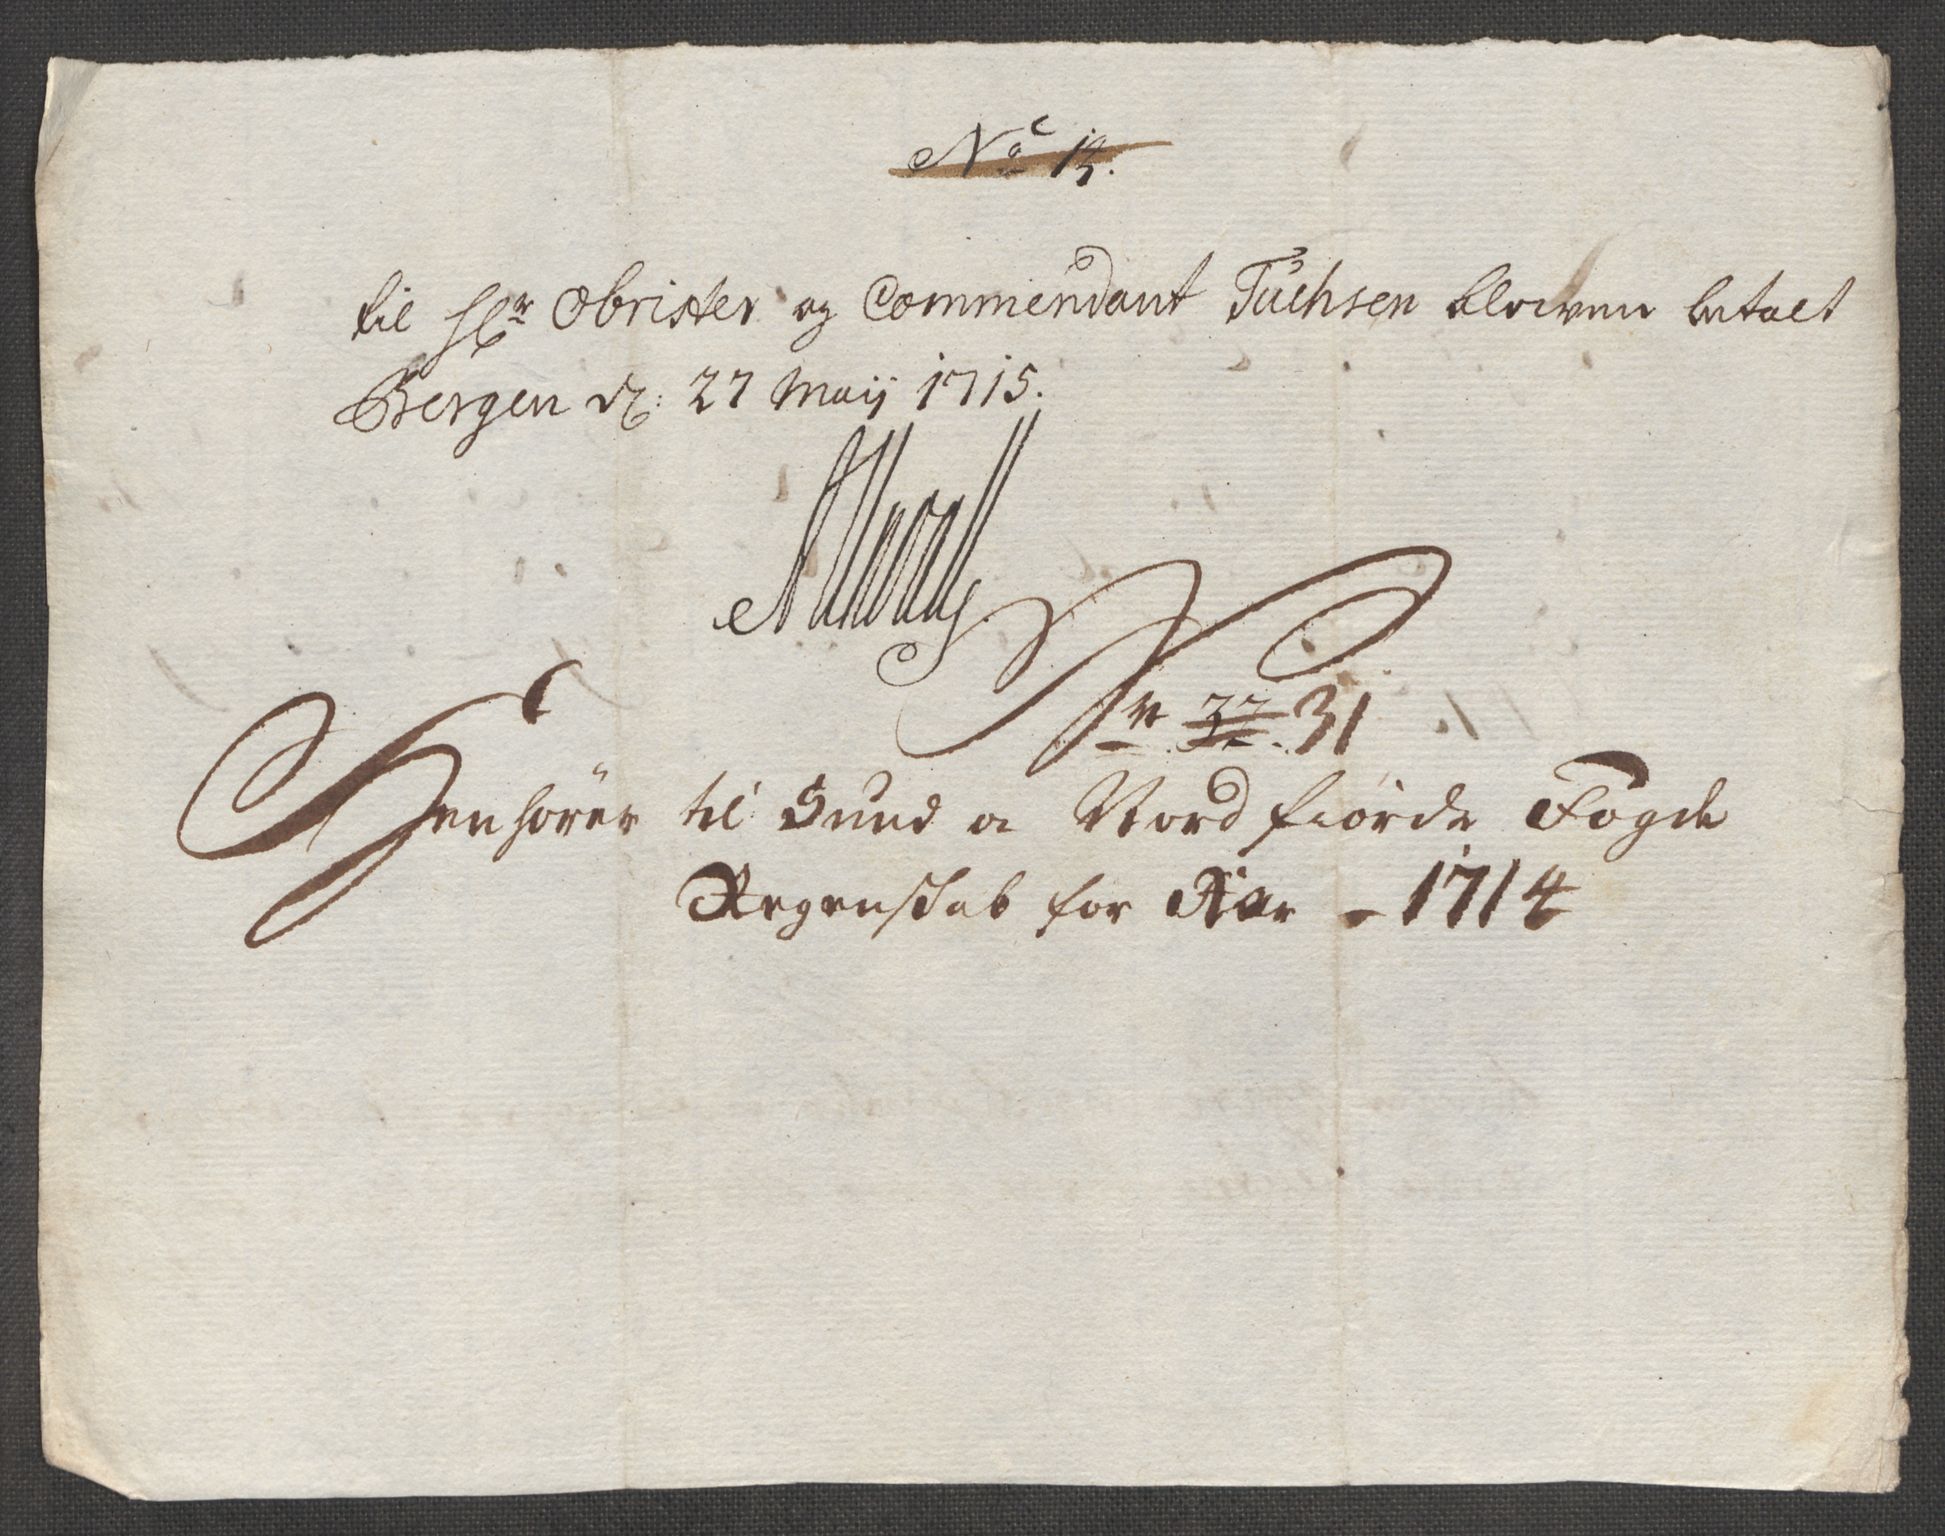 No 14.
til Hr Obrister og Commendant Tuchsen bleven betalt
Bergen d: 27 Maij 1715.
N 32. 31
Henhører til Sund o Nordfiørds Fogde
Regenskab for Aar - 1714